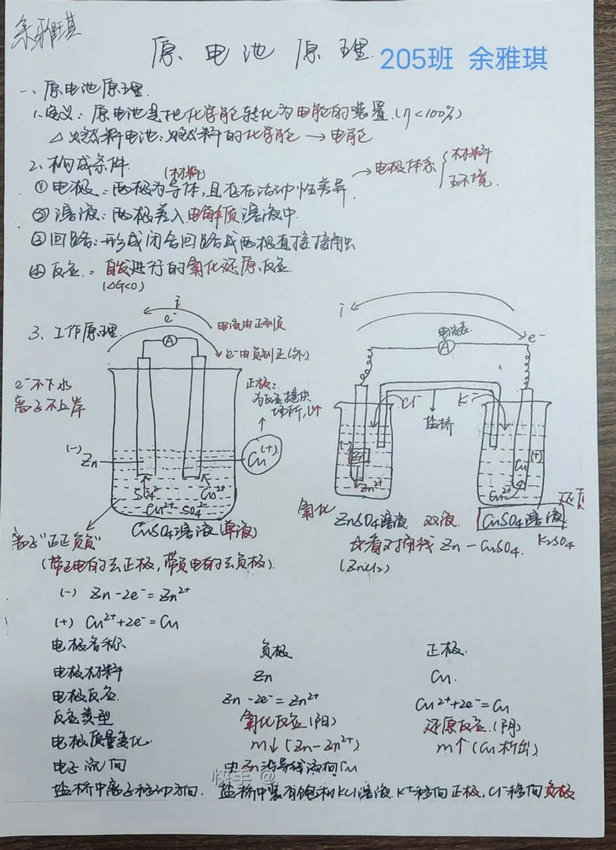 余雅琪
原电池原理 205班 余雅琪
一、原电池原理.
1.定义：原电池是把化学能转化为电能的装置.(η<100%)
△燃料电池：燃料的化学能→电能
2、构成条件
(材料)
①电极：两极为导体，且存在活动性差异 → 电极体系 { 材料 环境.
②溶液：两极差入电解质溶液中
③回路：形成闭合回路或两极直接接触
④反应：自发进行的氧化还原反应.
(ΔG<0)
3、工作原理.
i
e⁻
电流由正到负
e⁻由负到正(外)
A
e⁻不下水
离子不上岸
正极：
为反应提供
场所,
(-) Zn
Cu (+)
SO₄²⁻
Cu²⁺
Cu²⁺ SO₄²⁻
CuSO₄溶液(单液)
i
电流表
A
e⁻
Cl⁻ K⁺
盐桥
(-) Zn
Zn²⁺
Cu (+)
Cu²⁺
氧化
还原
ZnSO₄溶液 双液. CuSO₄溶液
Zn-CuSO₄. K₂SO₄
(ZnCl₂)
离子"正正负负"
(带正电的去正极，带负电的去负极).
(-) Zn-2e⁻=Zn²⁺
(+) Cu²⁺+2e⁻=Cu
电极名称 负极 正极.
电极材料 Zn Cu.
电极反应 Zn-2e⁻=Zn²⁺ Cu²⁺+2e⁻=Cu
反应类型 氧化反应(阳) 还原反应.(阴)
电极质量变化. m↓(Zn-Zn²⁺) m↑(Cu析出)
电子流向 由Zn沿导线流向Cu
快手 @
盐桥中离子移动方向. 盐桥中装有饱和KCl溶液 K⁺移向正极，Cl⁻移向负极